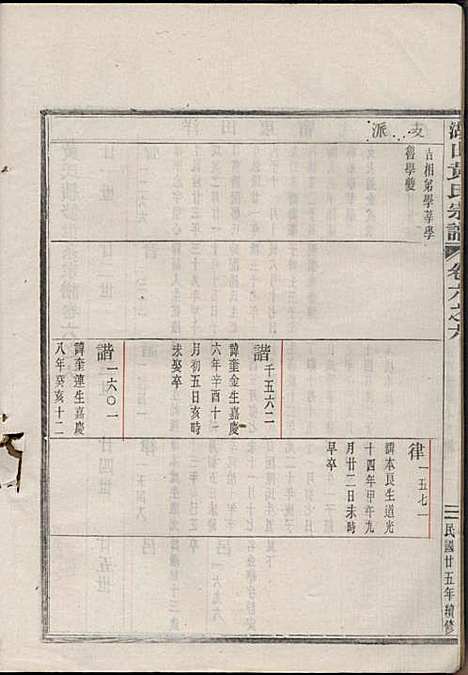 湖山黃氏宗譜
卷六之六
民國廿五年續修
支派
吉相弟學莘學
舊學燮
諧千五六二
諱奎金生嘉慶
六年辛酉十二
月初五日亥時
未娶卒
諧一六〇一
諱奎蓮生嘉慶
八年癸亥十二
律一五七一
諱本良生道光
十四年甲午九
月廿二日未時
早卒